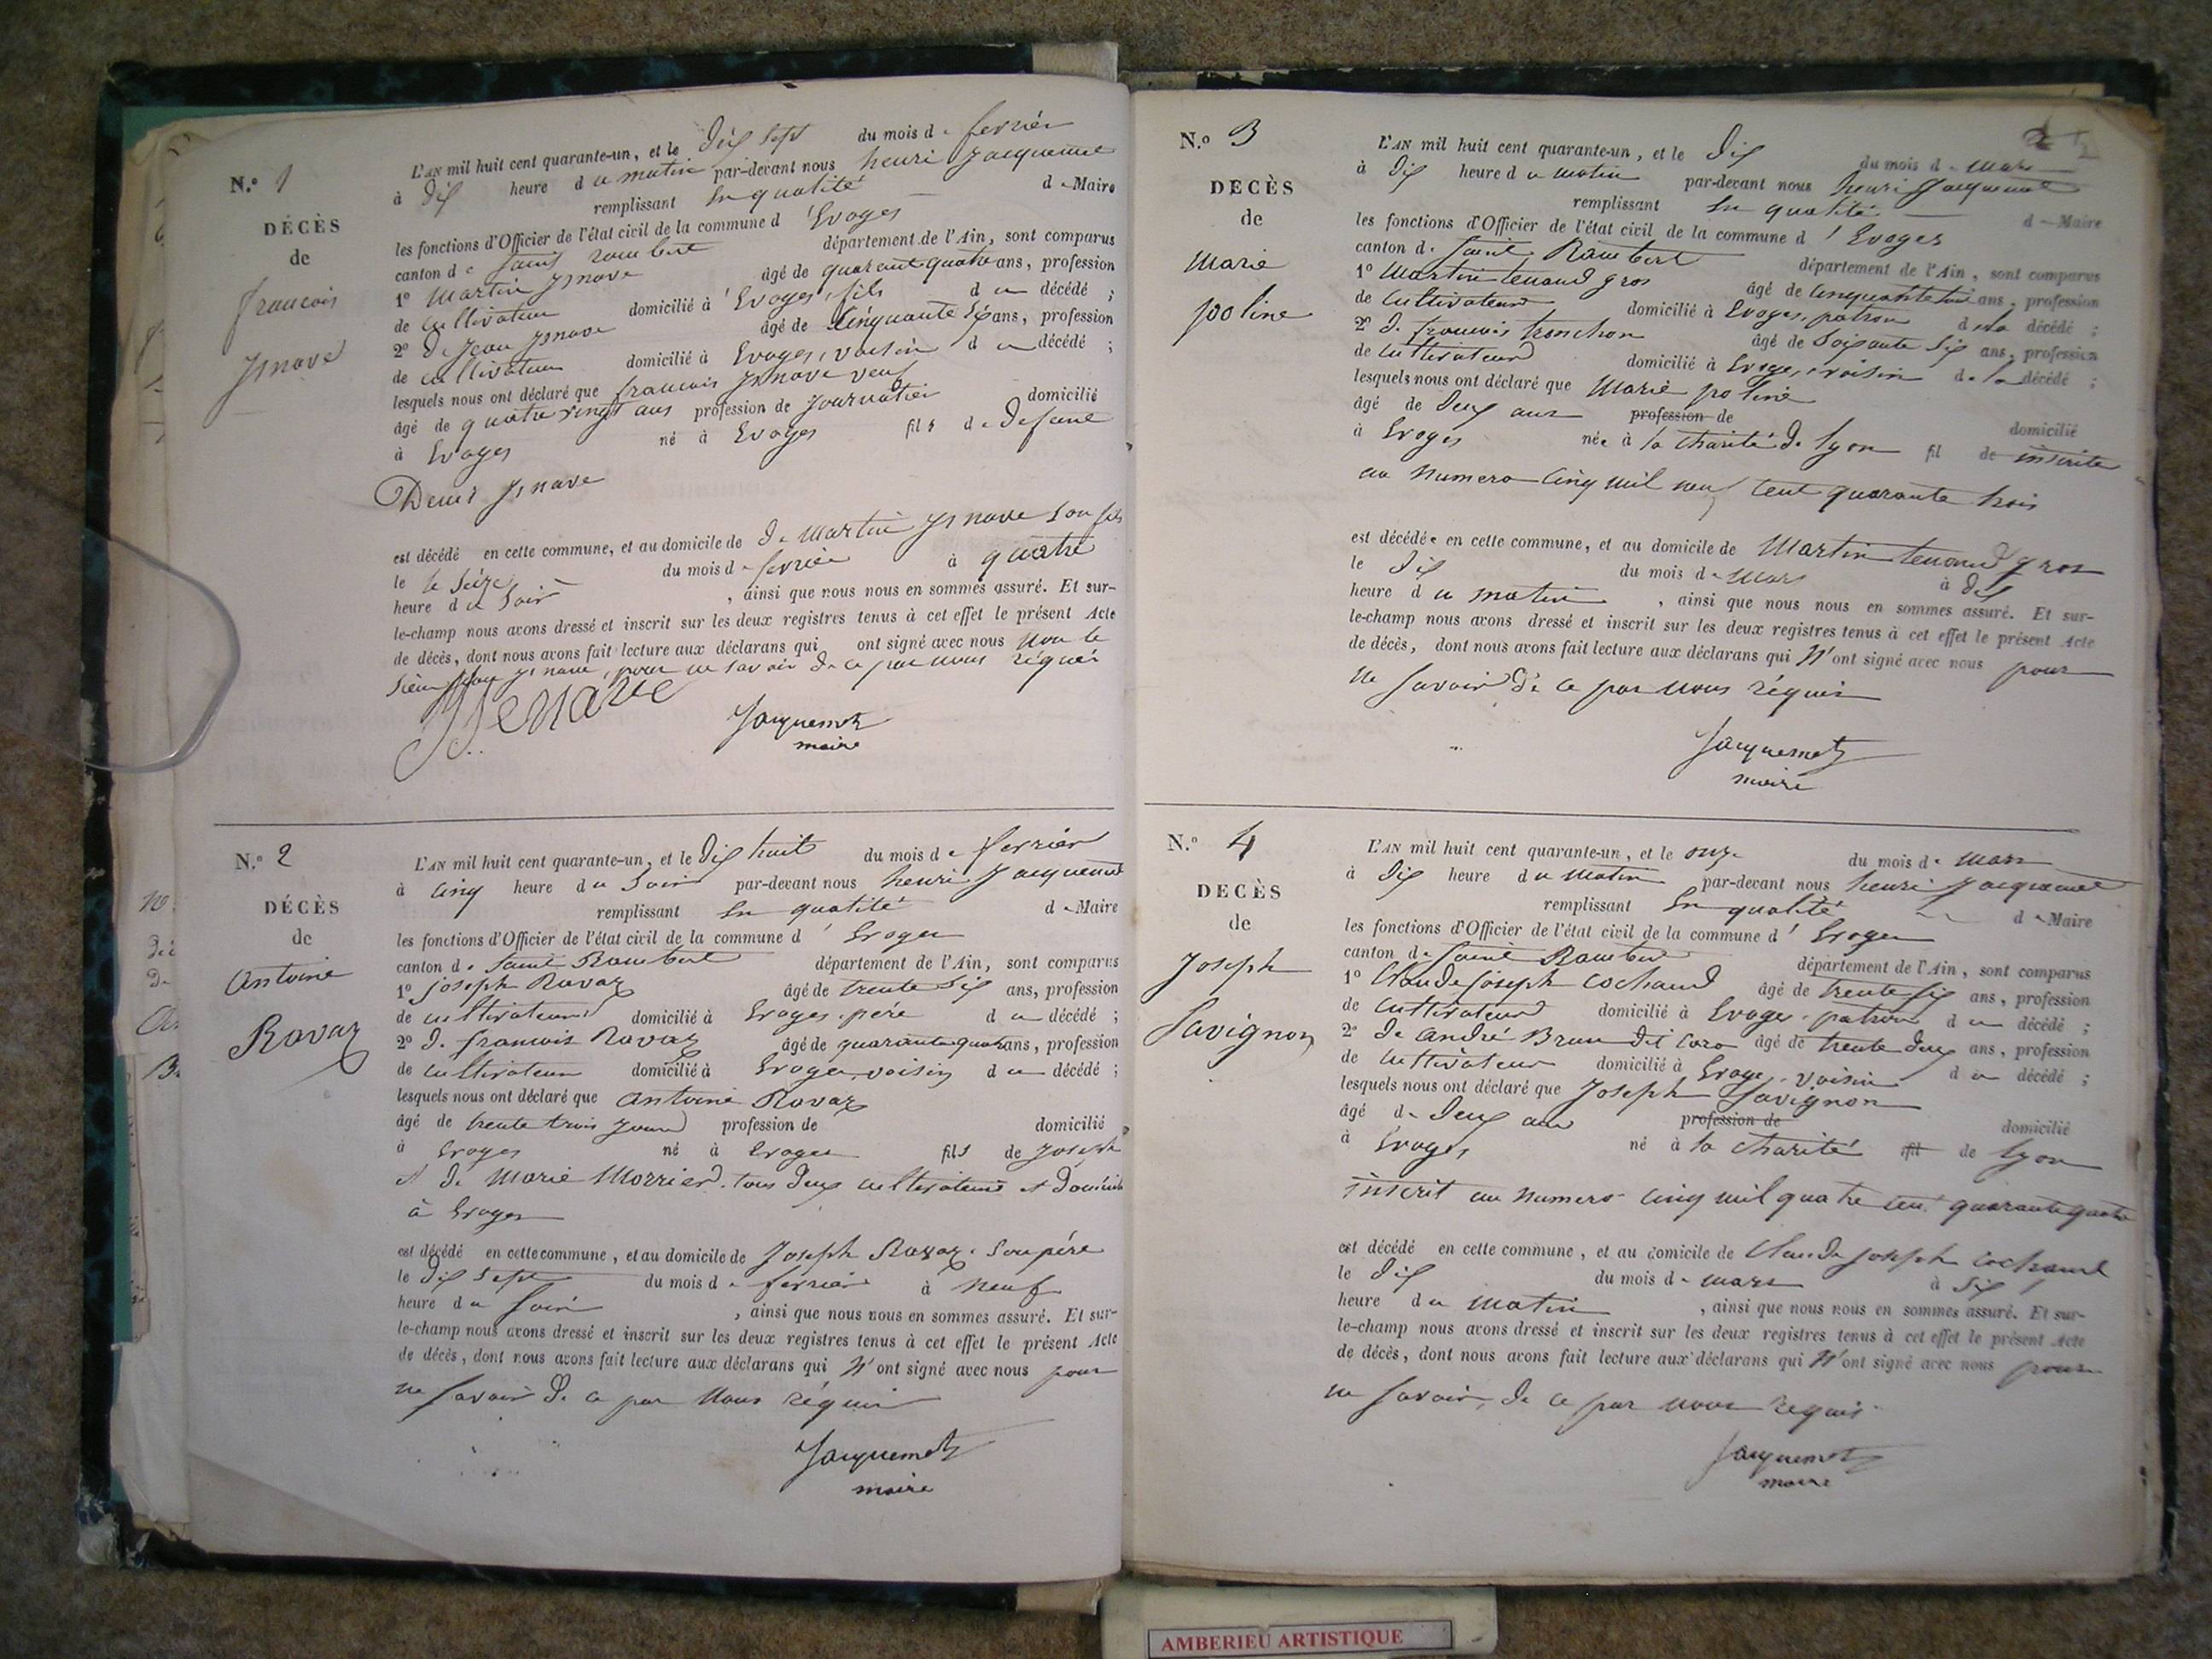 N.º 1
DÉCÈS
de
francois
Jsnave
L'AN mil huit cent quarante-un, et le Dix Sept du mois de fevrier
à Dix heure du matin par-devant nous henri Jacquemet
remplissant En qualité de Maire
les fonctions d'Officier de l'état civil de la commune d'Evoges
canton de Saint rambert département de l'Ain, sont comparus
1º Martin Jsnave âgé de quarente quatre ans, profession
de Cultivateur domicilié à Evoges, fils du décédé ;
2º De Jean Jsnave âgé de Cinquante Six ans, profession
de cultivateur domicilié à Evoges, voisin du décédé ;
lesquels nous ont déclaré que francois Jsnave veuf
âgé de quatre vingt ans profession de Journalier domicilié
à Evoges né à Evoges fils de Defunt
Denis Jsnave
est décédé en cette commune, et au domicile de De Martin Jsnave Son fils
le le Seize du mois de fevrier à quatre
heure du Soir , ainsi que nous nous en sommes assuré. Et sur-
le-champ nous avons dressé et inscrit sur les deux registres tenus à cet effet le présent Acte
de décès, dont nous avons fait lecture aux déclarans qui ont signé avec nous Non le
Sieur Jean Jsnave, pour ne savoir De ce par nous réquis
Jacquemet
maire
N.º 2
DÉCÈS
de
Antoine
Ravaz
L'AN mil huit cent quarante-un, et le Dix huit du mois de fevrier
à Cinq heure du Soir par-devant nous henri Jacquemet
remplissant En qualité de Maire
les fonctions d'Officier de l'état civil de la commune d'Evoges
canton de Saint Rambert département de l'Ain, sont comparus
1º Joseph Ravaz âgé de trente Six ans, profession
de cultivateur domicilié à Evoges, pére du décédé ;
2º De francois Ravaz âgé de quarante quatre ans, profession
de Cultivateur domicilié à Evoges, voisin du décédé ;
lesquels nous ont déclaré que Antoine Ravaz
âgé de trente trois Jours profession de domicilié
à Evoges né à Evoges fils de Joseph
et De Marie Morrier tous Deux cultivateurs et Domicilié
à Evoges
est décédé en cette commune, et au domicile de Joseph Ravaz, Son pére
le Dix Sept du mois de fevrier à Neuf
heure du Soir , ainsi que nous nous en sommes assuré. Et sur-
le-champ nous avons dressé et inscrit sur les deux registres tenus à cet effet le présent Acte
de décès, dont nous avons fait lecture aux déclarans qui N'ont signé avec nous pour
ne Savoir De ce par Nous réquis
Jacquemet
maire
N.º 3
DÉCÈS
de
Marie
poline
L'AN mil huit cent quarante-un, et le Dix du mois de Mars
à Dix heure du Matin par-devant nous henri Jacquemet
remplissant En qualité de Maire
les fonctions d'Officier de l'état civil de la commune d'Evoges
canton de Saint Rambert département de l'Ain, sont comparus
1º Martin tenand gros âgé de Cinquante huit ans, profession
de Cultivateur domicilié à Evoges, patron de la décédé ;
2º De francois tronchon âgé de Soixante Six ans, profession
de Cultivateur domicilié à Evoges, voisin de la décédé ;
lesquels nous ont déclaré que Marie poline
âgé de Deux ans profession de domicilié
à Evoges née à la Charité De Lyon fil de inscrite
au Numero Cinq mil neuf Cent quarante trois
est décédée en cette commune, et au domicile de Martin tenand gros
le Dix du mois de Mars à Dix
heure du matin , ainsi que nous nous en sommes assuré. Et sur-
le-champ nous avons dressé et inscrit sur les deux registres tenus à cet effet le présent Acte
de décès, dont nous avons fait lecture aux déclarans qui N'ont signé avec nous pour
ne Savoir De ce par Nous réquis
Jacquemet
maire
N.º 4
DÉCÈS
de
Joseph
Savignon
L'AN mil huit cent quarante-un, et le onze du mois de Mars
à Dix heure du Matin par-devant nous henri Jacquemet
remplissant En qualité de Maire
les fonctions d'Officier de l'état civil de la commune d'Evoges
canton de Saint Rambert département de l'Ain, sont comparus
1º Claude Joseph Cochand âgé de trente Six ans, profession
de Cultivateur domicilié à Evoges, patron du décédé ;
2º De André Brun Dit Caro âgé de trente Deux ans, profession
de Cultivateur domicilié à Evoges, voisin du décédé ;
lesquels nous ont déclaré que Joseph Savignon
âgé de Deux ans profession de domicilié
à Evoges né à la Charité fil de Lyon
inscrit au Numero Cinq mil quatre Cent quarante quatre
est décédé en cette commune, et au domicile de Claude Joseph Cochand
le Dix du mois de Mars à Six
heure du Matin , ainsi que nous nous en sommes assuré. Et sur-
le-champ nous avons dressé et inscrit sur les deux registres tenus à cet effet le présent Acte
de décès, dont nous avons fait lecture aux déclarans qui N'ont signé avec nous pour
ne Savoir, De ce par nous requis
Jacquemet
maire
AMBERIEU ARTISTIQUE